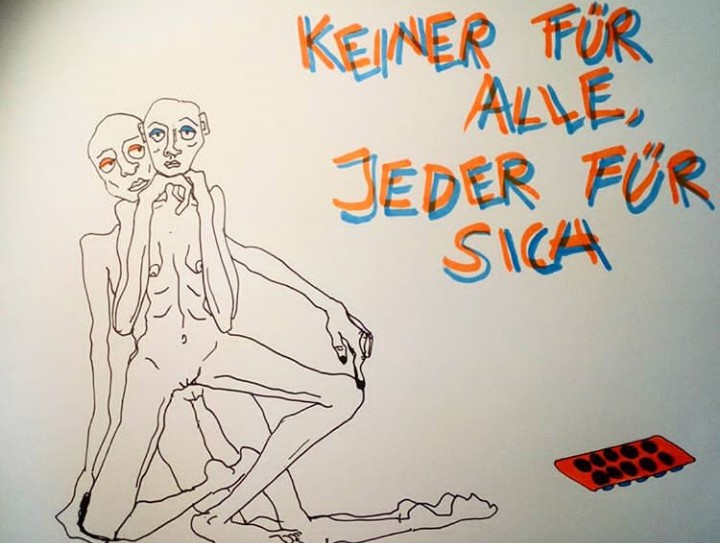 KEINER FÜR
ALLE,
JEDER FÜR
SICH